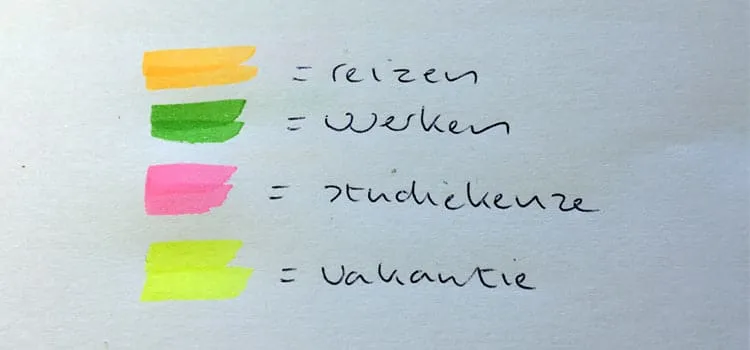 = reizen
= werken
= studiekeuze
= vakantie